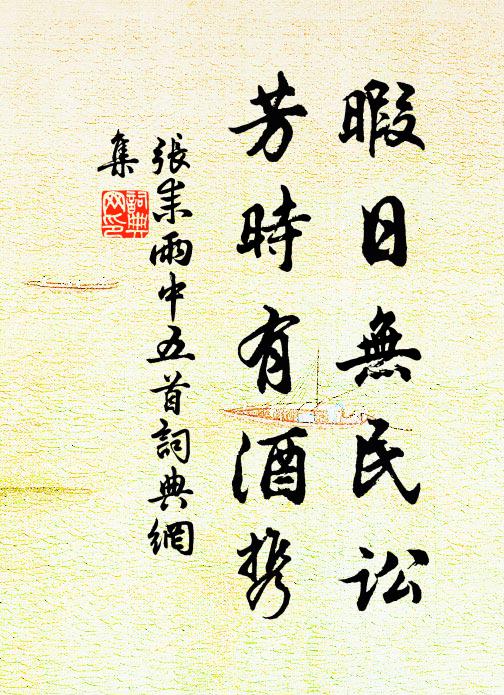 暇日無民訟
芳時有酒携
張耒雨中五首詞典網
集
詞典网印